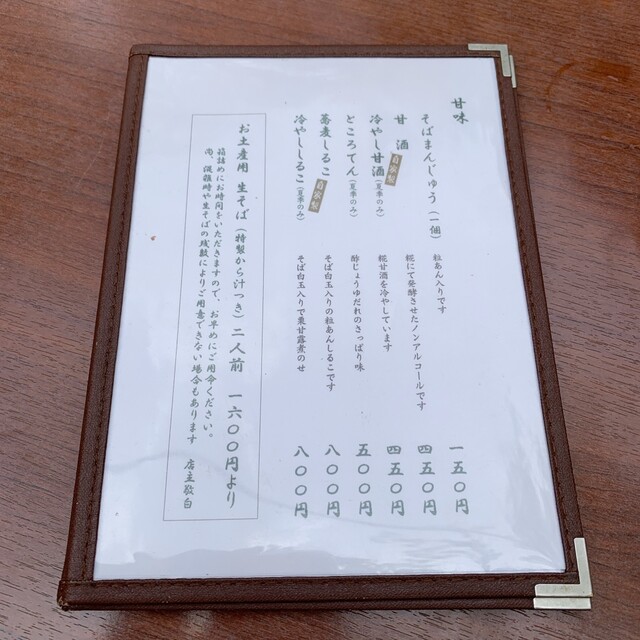 甘味
そばまんじゅう（一個） 粒あん入りです 一五〇円
甘酒 糀にて発酵させたノンアルコールです 四五〇円
冷やし甘酒（夏季のみ） 糀甘酒を冷やしています 四五〇円
ところてん（夏季のみ） 酢じょうゆだれのさっぱり味 五〇〇円
蕎麦しるこ そば白玉入りの粒あんしるこです 八〇〇円
冷やししるこ（夏季のみ） そば白玉入りで栗甘露煮のせ 八〇〇円
お土産用 生そば（特製から汁つき）二人前 一六〇〇円より
箱詰めにお時間をいただきますので、お早めにご用命ください。
尚、混雑時や生そばの残数によりご用意できない場合もあります 店主敬白